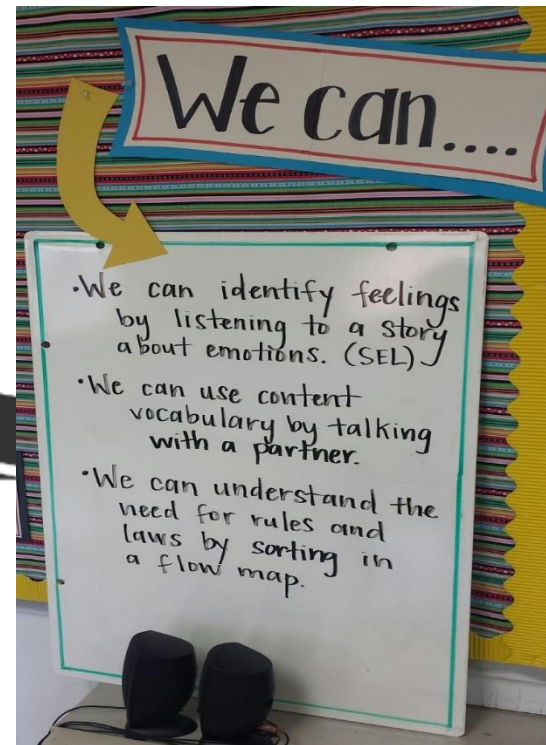 We can....
•We can identify feelings
by listening to a story
about emotions. (SEL)
•We can use content
vocabulary by talking
with a partner.
•We can understand the
need for rules and
laws by sorting in
a flow map.